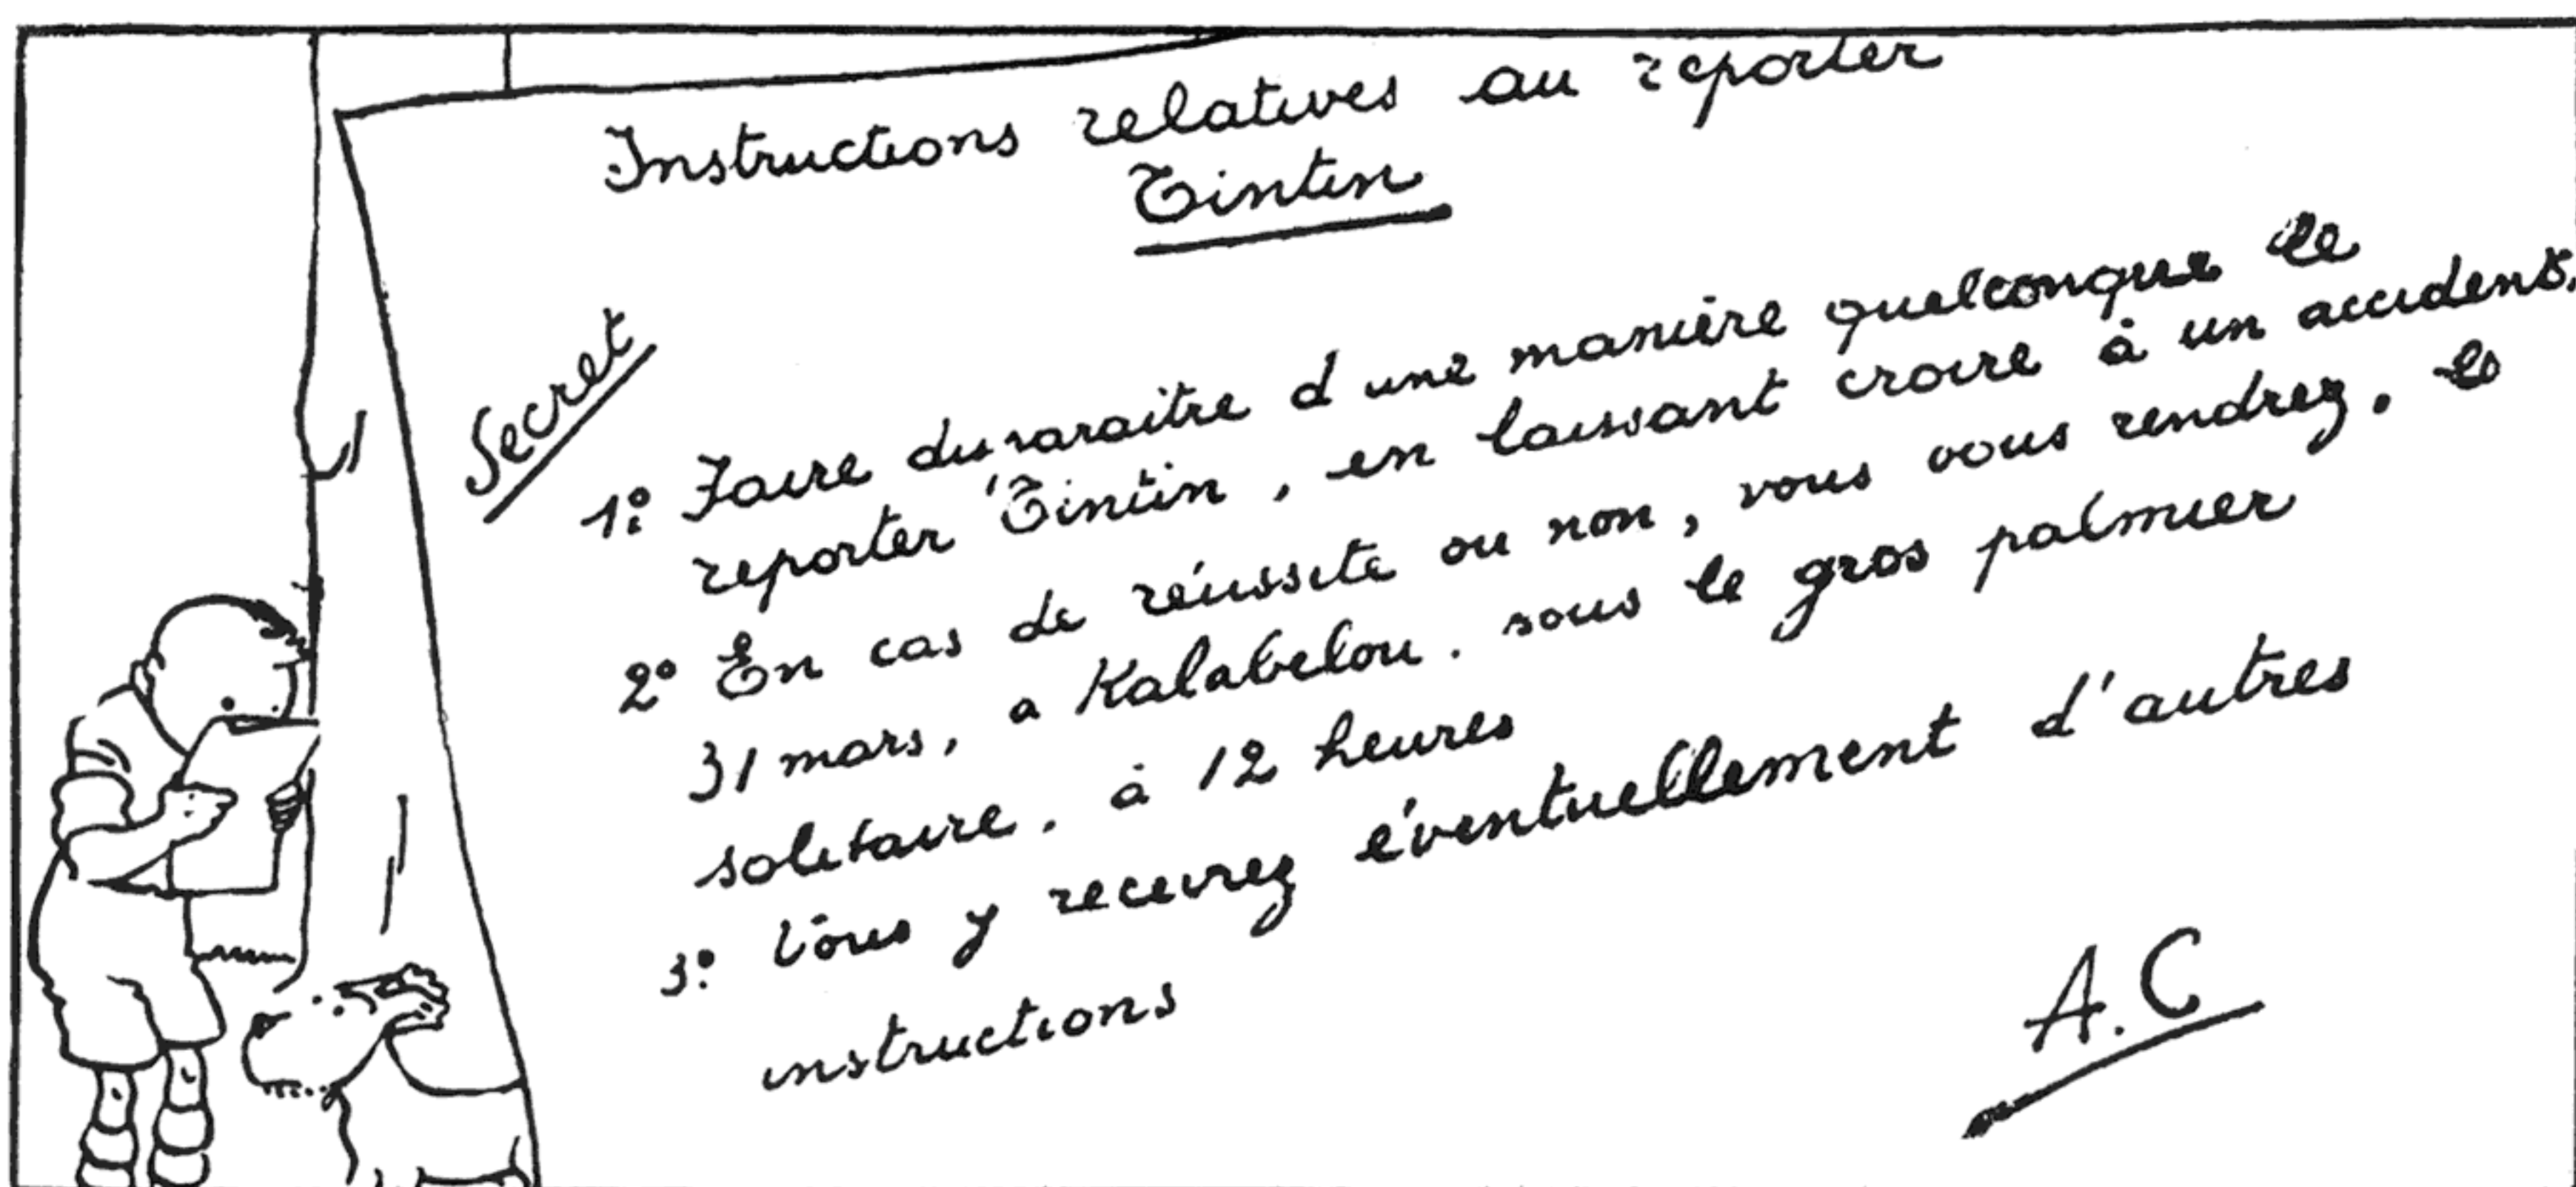 Instructions relatives au reporter
Tintin
Secret
1º Faire disparaitre d'une manière quelconque le
reporter Tintin, en laissant croire à un accident.
2º En cas de réussite ou non, vous vous rendrez, le
31 mars, a Kalabelou. sous le gros palmier
solitaire, à 12 heures
3º Vous y recevrez éventuellement d'autres
instructions
A.C